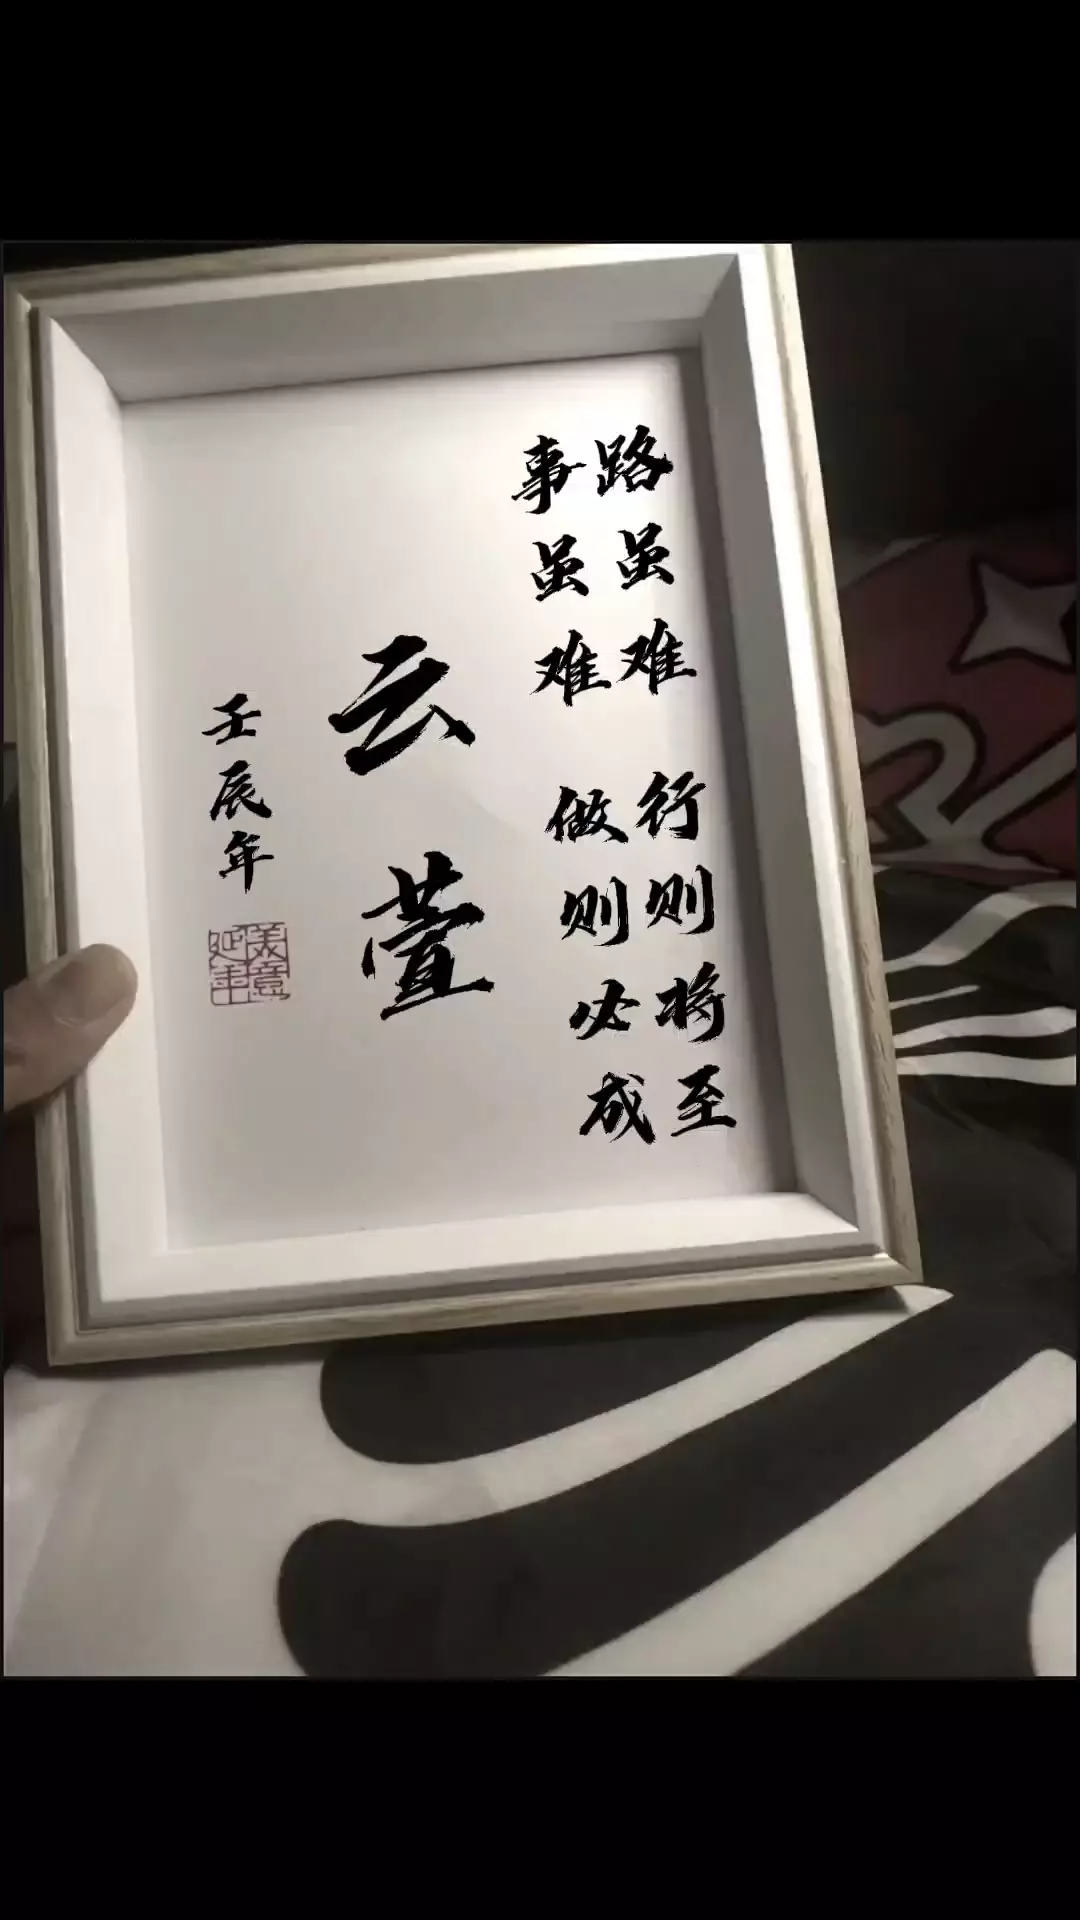 路虽难 行则将至
事虽难 做则必成
云萱
壬辰年
美意延年